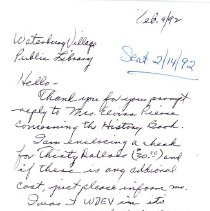 Feb. 9/92
Waterbury Village
Public Library
Sent 2/14/92
Hello-
Thank you for you prompt
reply to Mrs. Pierce
concerning the History Book.
I am enclosing a check
for Thirty Dollars (30.00) and
if there is any additional
cost, just please inform me.
I was WDEV in its